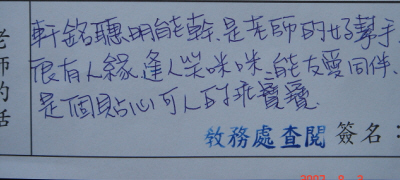 老師的話
軒銘聰明能幹,是老師的好幫手,
很有人緣,逢人笑咪咪,能友愛同伴,
是個貼心可人的乖寶寶
教務處查閱 簽名: